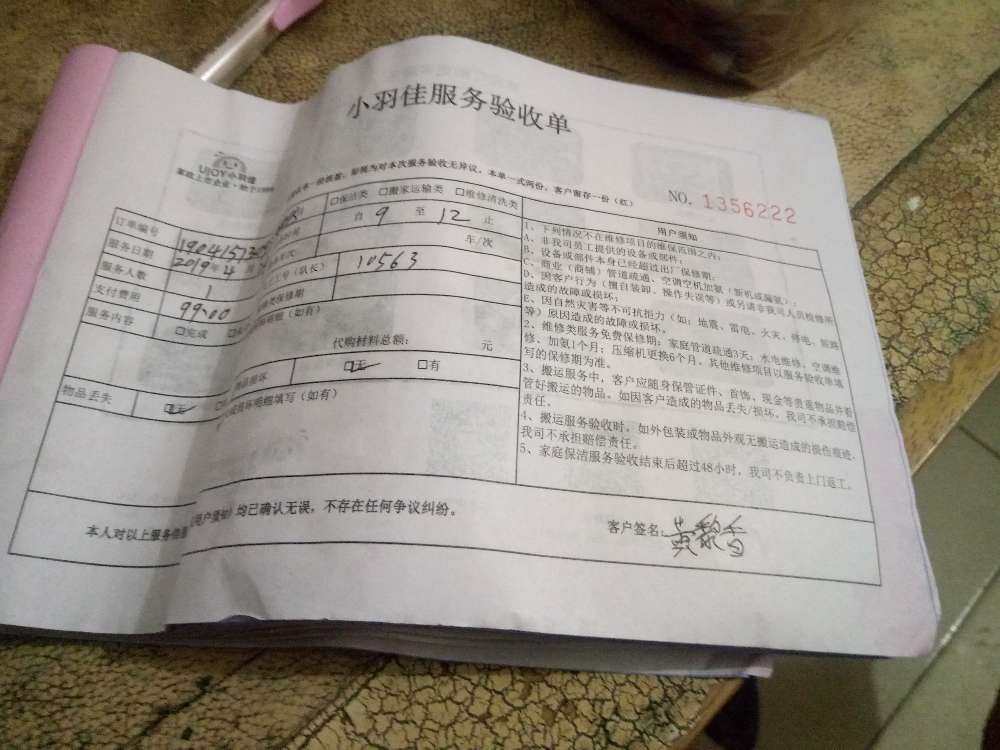 小羽佳服务验收单
UJOY小羽佳
NO. 1356222
本单一经签署，即视为对本次服务验收无异议。本单一式两份，客户留存一份（红）
订单编号
□保洁类 □搬家运输类 □维修清洗类
服务日期 2019年4月
自 9 至 12 止
服务人数 1
车/次
工号（队长） 10563
支付费用 99.00
服务内容 □完成
保修期
（如有）
代购材料总额： 元
物品丢失 □无
物品损坏 □无 □有
损坏明细填写（如有）
用户须知
1、下列情况不在维修项目的维保范围之内：
A、非我司员工提供的设备或部件；
B、设备或部件本身已经超过出厂保修期；
C、商业（商铺）管道疏通、空调空机加氨（新机或漏氨）；
D、因客户行为（擅自装卸、操作失误等）或另请非我司人员检修所
造成的故障或损坏；
E、因自然灾害等不可抗拒力（如：地震、雷电、火灾、停电、短路
等）原因造成的故障或损坏。
2、维修类服务免费保修期：家庭管道疏通3天；水电维修、空调维
修、加氨1个月；压缩机更换6个月，其他维修项目以服务验收单填
写的保修期为准。
3、搬运服务中，客户应随身保管证件、首饰、现金等贵重物品并看
管好搬运的物品。如因客户造成的物品丢失/损坏，我司不承担赔偿
责任。
4、搬运服务验收时，如外包装或物品外观无搬运造成的损伤痕迹，
我司不承担赔偿责任。
5、家庭保洁服务验收结束后超过48小时，我司不负责上门返工。
本人对以上服务 用户须知》均已确认无误，不存在任何争议纠纷。
客户签名：黄黎香